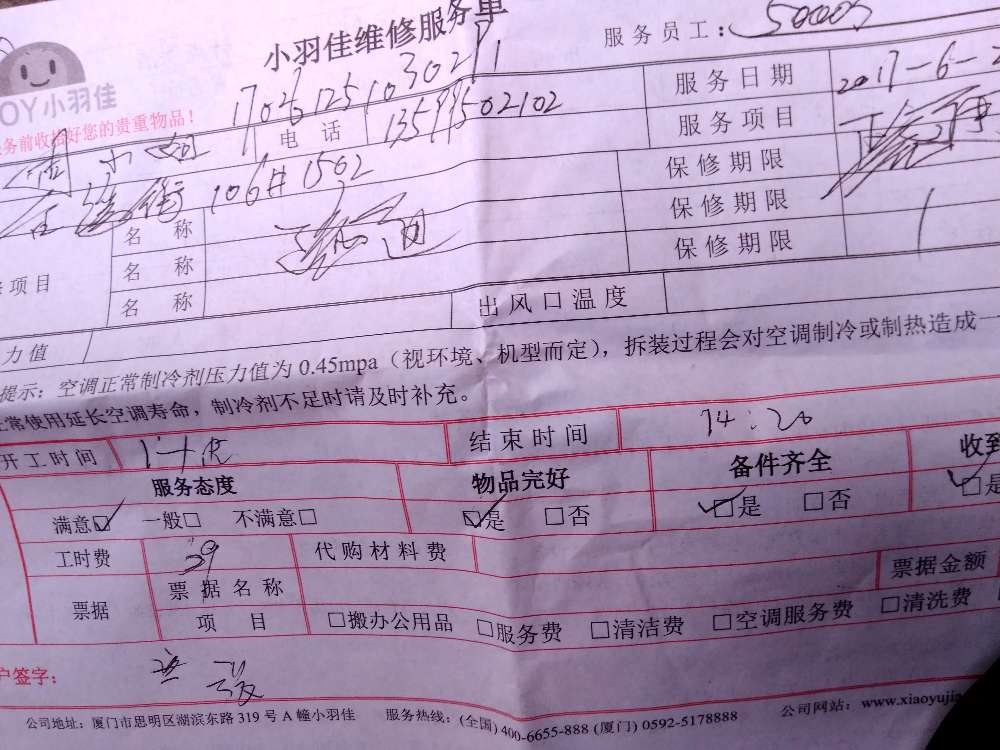 小羽佳维修服务单
服务员工：50005
OY小羽佳
务前收拾好您的贵重物品！
17026125103021
电话 13599502102
服务日期 2017-6-2
服务项目
106# 1502
保修期限
名称
保修期限
名称
保修期限
项目
名称
出风口温度
力值
提示：空调正常制冷剂压力值为0.45mpa（视环境、机型而定），拆装过程会对空调制冷或制热造成一
常使用延长空调寿命，制冷剂不足时请及时补充。
开工时间
结束时间 14:20
服务态度 物品完好 备件齐全 收到
满意☑ 一般□ 不满意□ ☑是 □否 ☑是 □否 ☑是
工时费 39 代购材料费
票据 票据名称 票据金额
项目 □搬办公用品 □服务费 □清洁费 □空调服务费 □清洗费
户签字：
公司地址：厦门市思明区湖滨东路319号A幢小羽佳 服务热线：(全国)400-6655-888 (厦门) 0592-5178888 公司网站：www.xiaoyujia